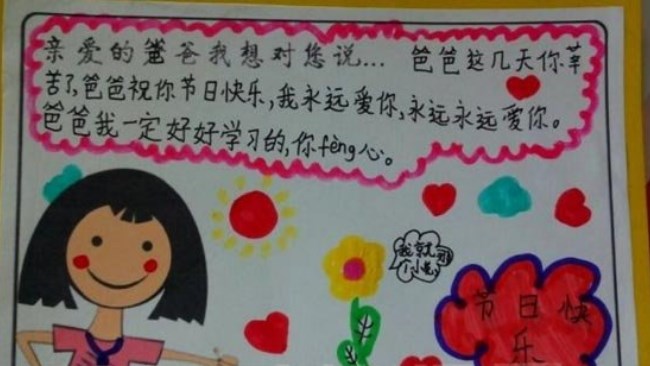 亲爱的爸爸我想对您说... 爸爸这几天你辛
苦了,爸爸祝你节日快乐,我永远爱你,永远永远爱你。
爸爸我一定好好学习的,你fèng心。
我就
节日快
乐